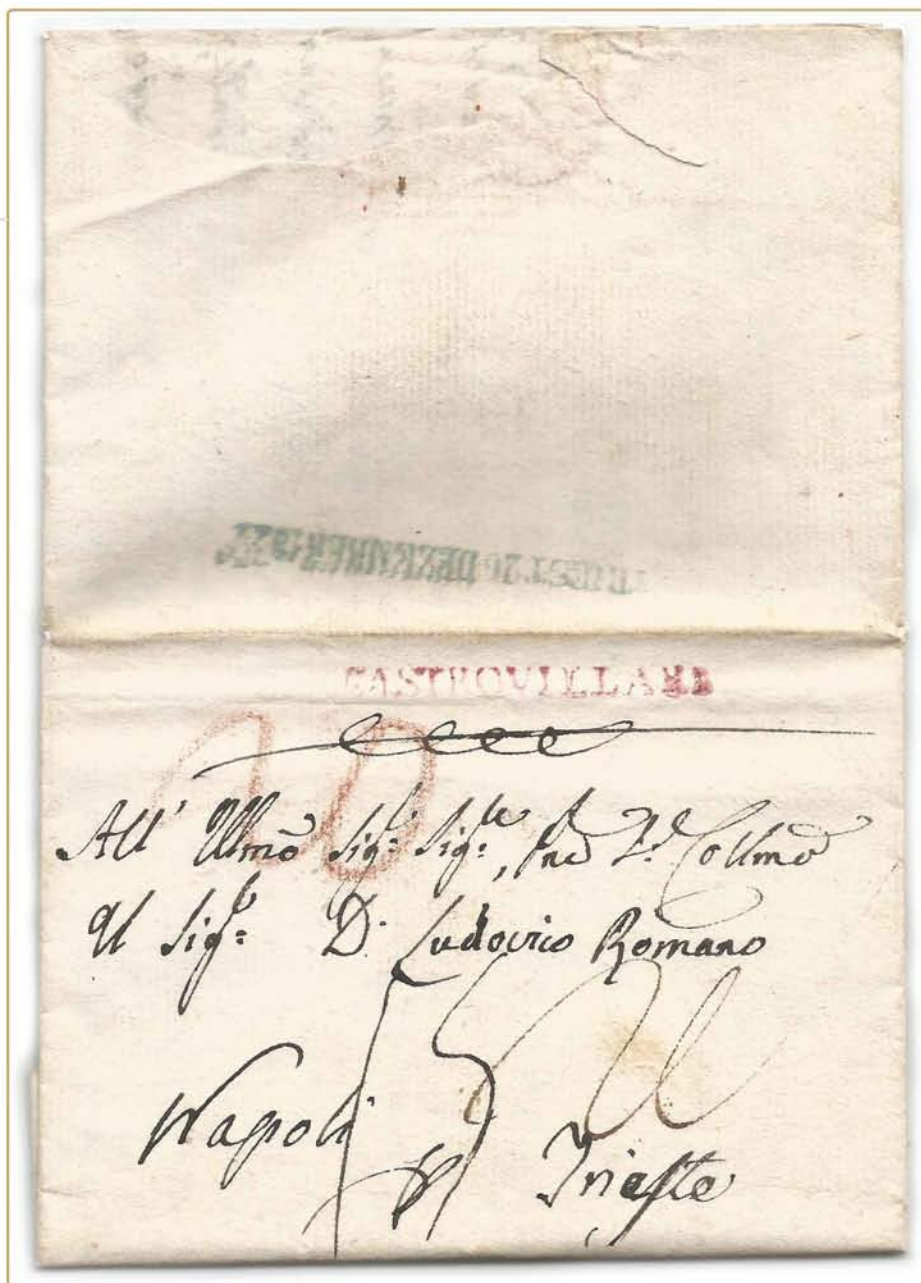 TRIEST 26 DEZEMBER
CASTROVILLARI
All' Illmo Sigr: Sigre, Pne Collmo
Il Sigr: D. Ludovico Romano
Napoli Trieste